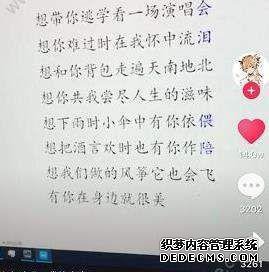 想带你逃学看一场演唱会
想你难过时在我怀中流泪
想和你背包走遍天南地北
想你共我尝尽人生的滋味
想下雨时小伞中有你依偎
想把酒言欢时也有你作陪
想我们做的风筝它也会飞
有你在身边就很美
3202
3261
织梦内容管理系统
DEDECMS.COM